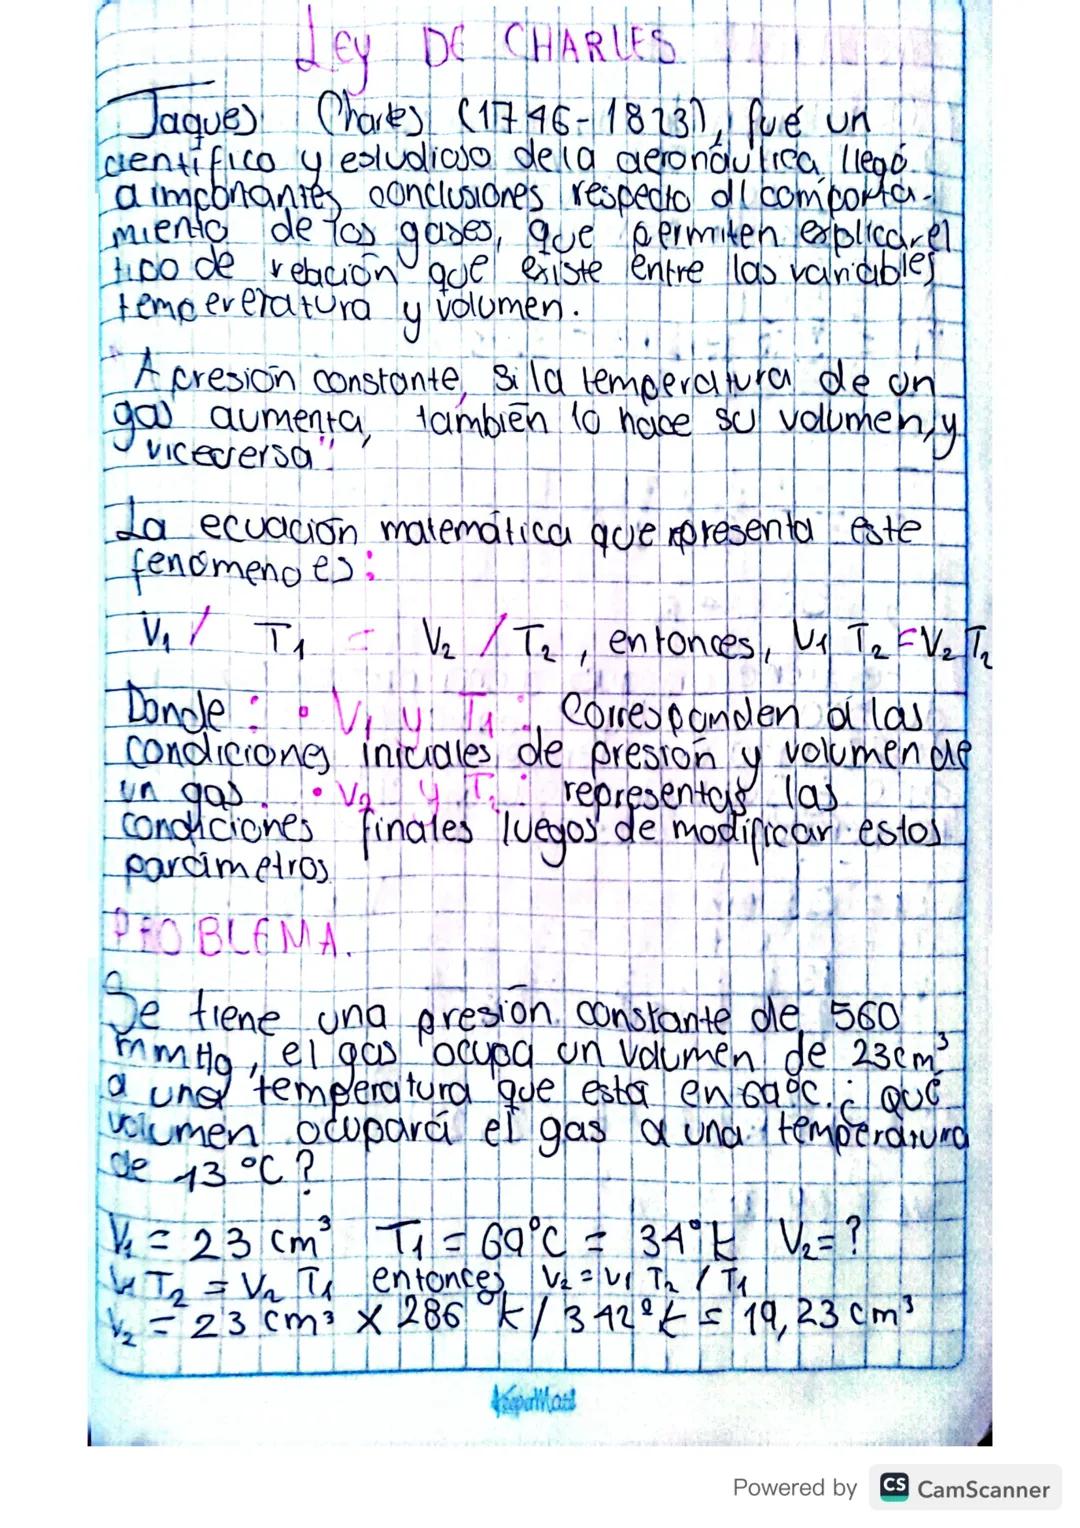 LEY DE CHARLES
Jaques Charles (1746-1823), fué un
científico y estudioso de la aeronáutica, llegó
a importantes conclusiones respecto al comporta-
miento de los gases, que permiten explicar el
tipo de relación que existe entre las variables
tempereratura y volumen.
"A presión constante, si la temperatura de un
gas aumenta, también lo hace su volumen, y
viceversa".
La ecuación matemática que representa este
fenómeno es:
V₁ / T₁ = V₂ / T₂, entonces, V₁ T₂ = V₂ T₂
Donde: • V₁ y T₁: Corresponden a las
condiciones iniciales de presión y volumen de
un gas. • V₂ y T₂: representas las
condiciones finales luegos de modificar estos
parámetros
PROBLEMA.
Se tiene una presión constante de 560
mmHg, el gas ocupa un volumen de 23cm³
a una temperatura que está en 69°C. ¿qué
volumen ocupará el gas a una temperatura
de 13 °C?
V₁ = 23 cm³ T₁ = 69°C = 34°k V₂=?
V₁ T₂ = V₂ T₁ entonces V₂ = V₁ T₂ / T₁
V₂ = 23 cm³ x 286 °k / 342°k = 19,23 cm³
KeeperMate
Powered by CS CamScanner